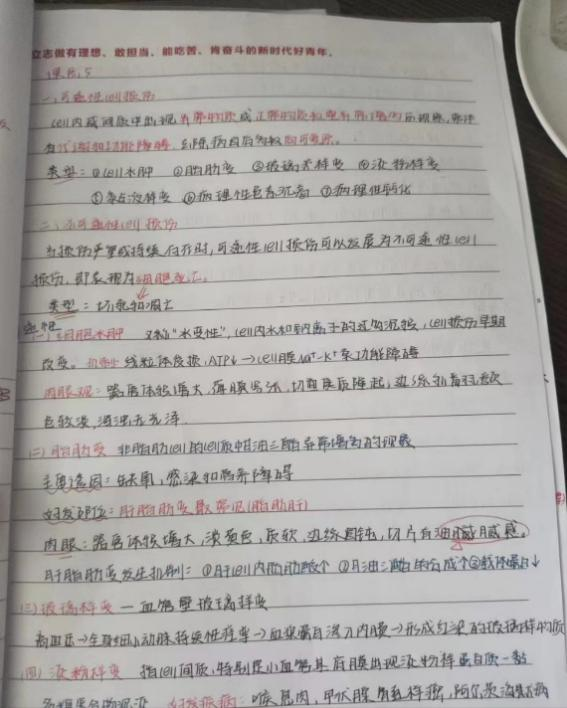 立志做有理想、敢担当、能吃苦、肯奋斗的新时代好青年。
一、可逆性cell损伤
cell内或间质中出现异常物质或正常物质
有 功能障碍, 去除病因后多数可复原。
类型：①cell水肿 ②脂肪变 ③玻璃样变 ④淀粉样变
⑤黏液样变 ⑥病理性色素沉着 ⑦病理性钙化
二、不可逆性cell损伤
当损伤严重或持续存在时，可逆性cell损伤可以发展为不可逆性cell
损伤，即表现为细胞死亡。
类型：坏死和凋亡
(一)细胞水肿 又称“水变性”，cell内水和钠离子的过多沉积，cell损伤早期
改变。机制：线粒体受损，ATP↓→cell膜Na⁺-K⁺泵功能障碍
肉眼观：器官体积增大，切面 隆起，边缘外翻
色较淡，混浊无光泽
(二)脂肪变 非脂肪cell的cell质中甘油三酯异常增多的现象
主要诱因：缺氧，感染和营养障碍
好发部位：肝脂肪变最常见(脂肪肝)
肉眼：器官体积增大，淡黄色，质软，边缘圆钝，切片有油腻感。
肝脂肪变发生机制：①肝cell内脂肪酸↑ ②甘油三酯的合成↑ ③载脂蛋白↓
(三)玻璃样变 — 血管壁玻璃样变
高血压→全身细小动脉持续性痉挛→血浆蛋白渗入内膜→形成红染的玻璃样物质
(四)淀粉样变 指cell间质，特别是小血管基底膜出现淀粉样蛋白质—黏
多糖复合物沉淀 好发疾病：喉息肉，甲状腺髓样癌，阿尔茨海默病